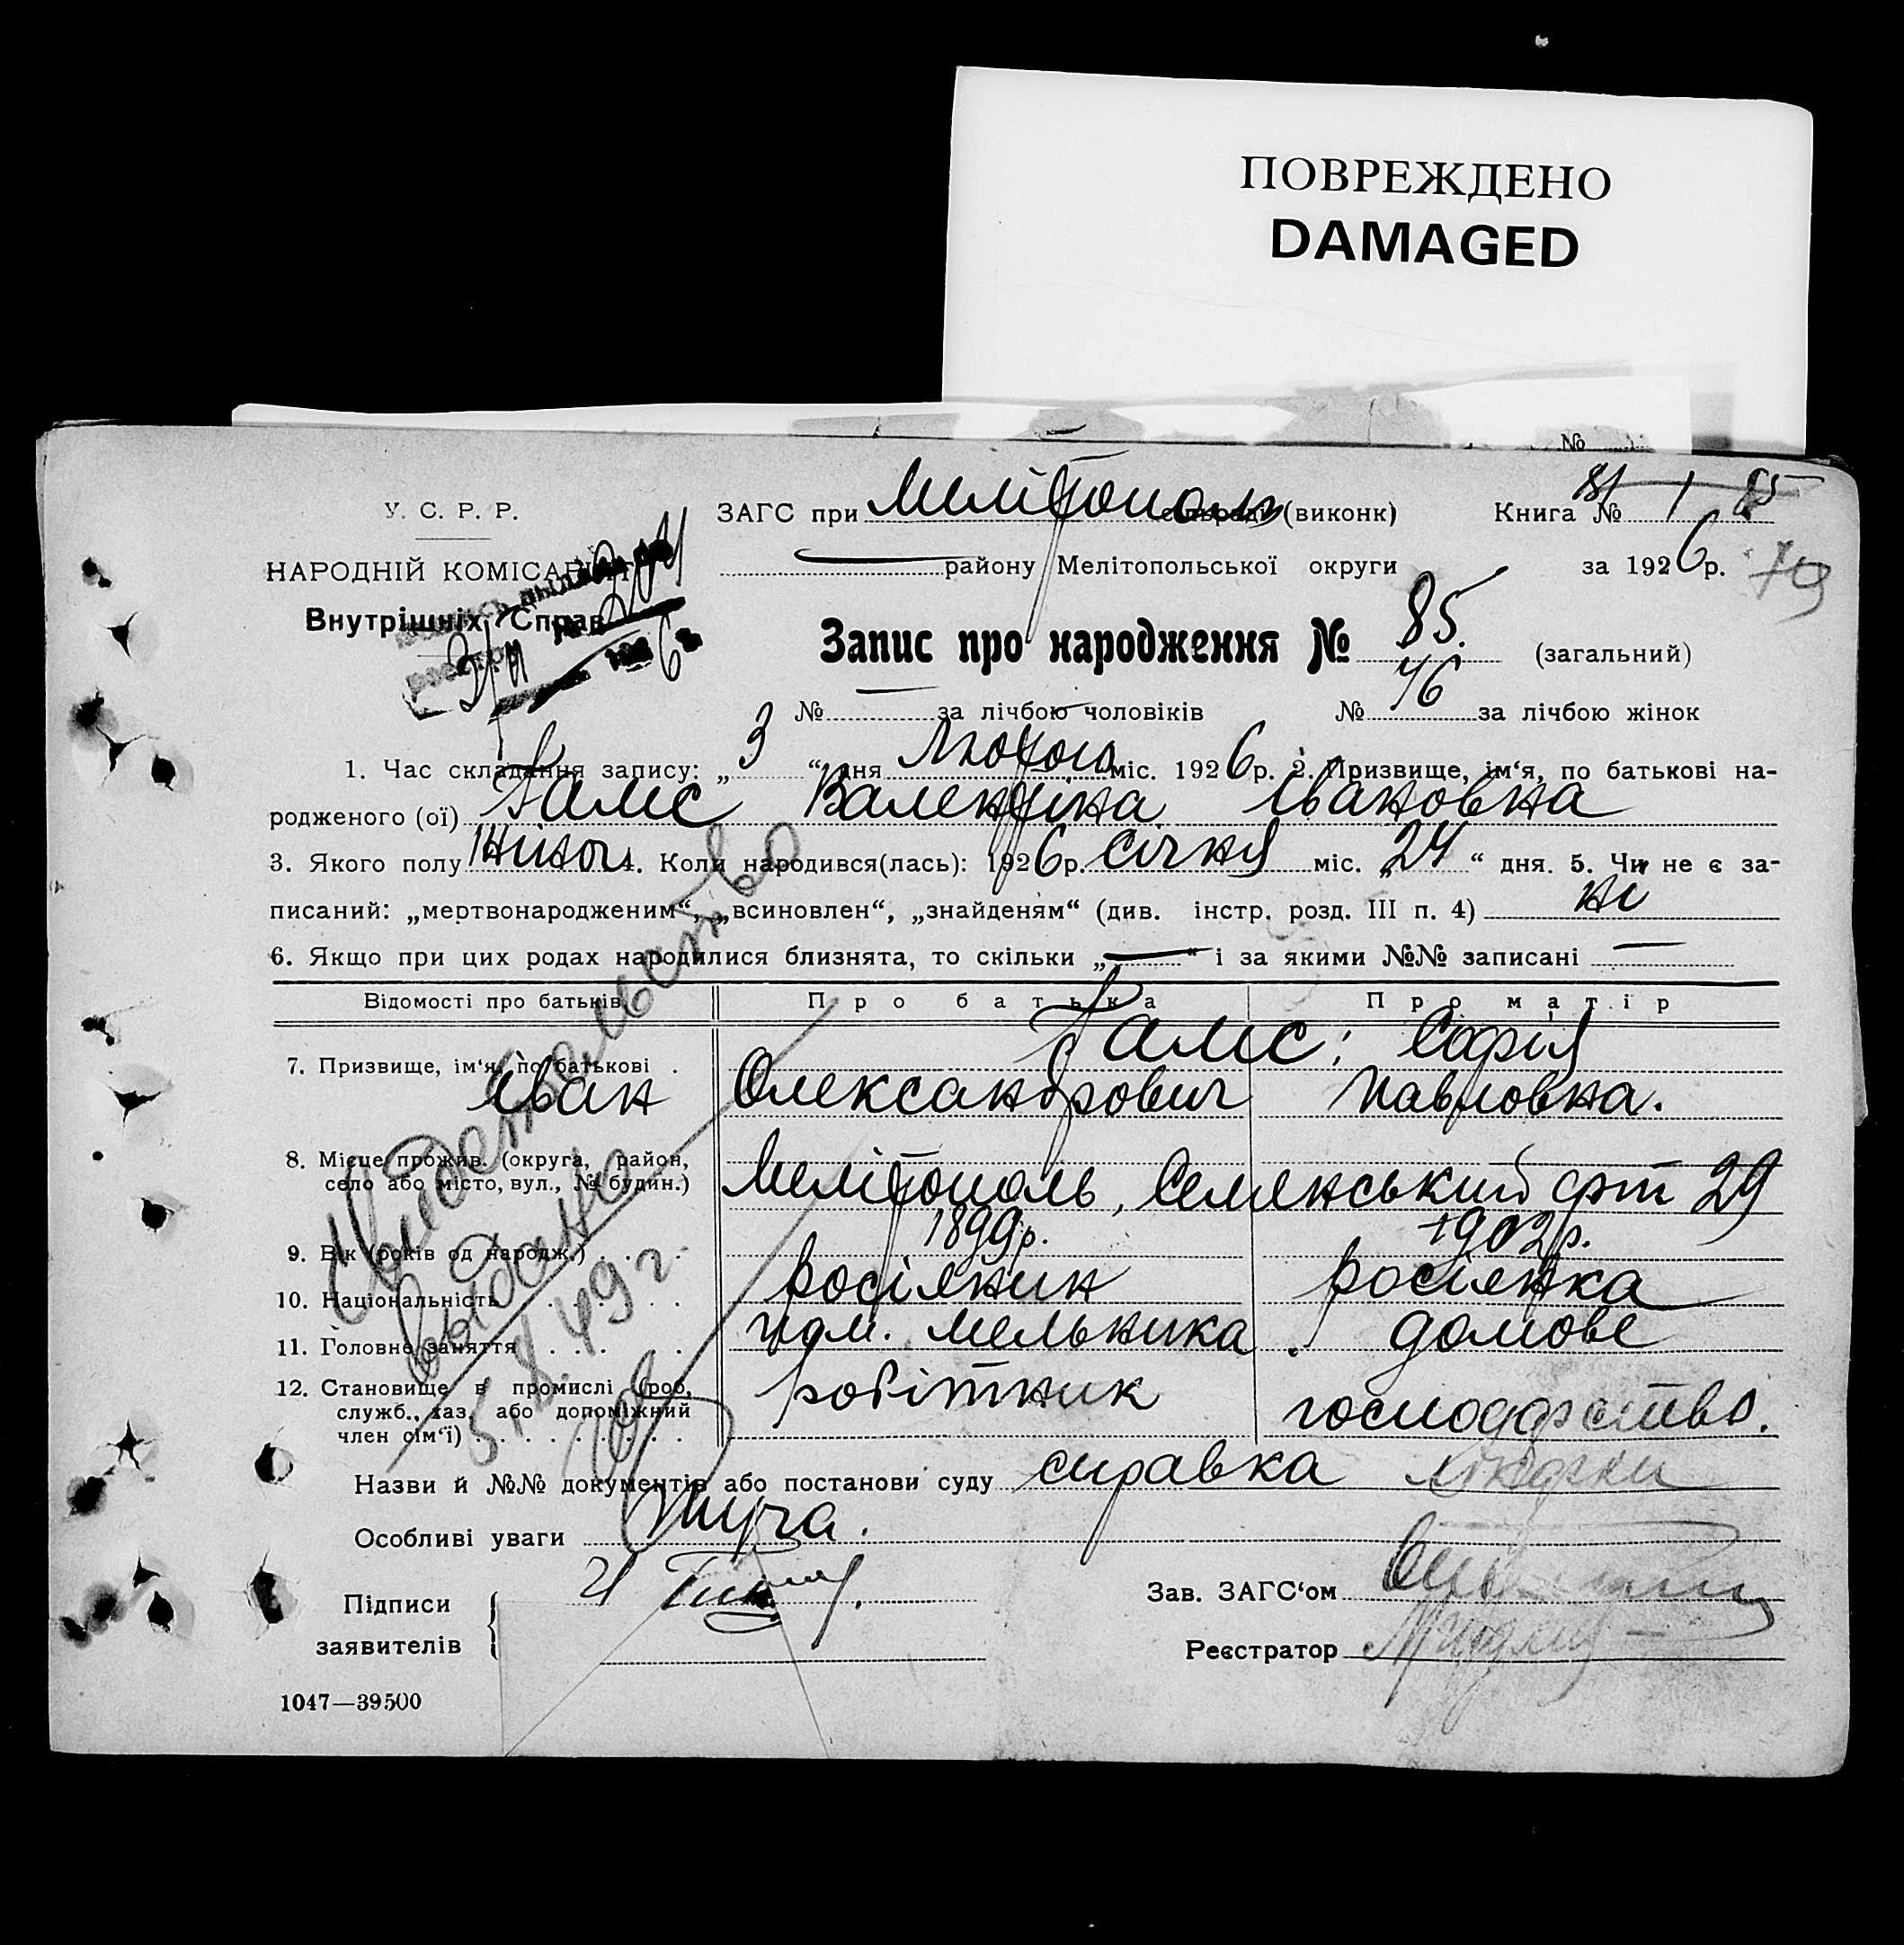 ПОВРЕЖДЕНО
DAMAGED
№
У. С. Р. Р.
НАРОДНІЙ КОМІСАРІЯТ
Внутрішніх Справ
ЗАГС при Мелітополь сільраді (виконк)
Книга № 81 1 85
району Мелітопольської округи за 1926 р. 79
Запис про народження № 85. (загальний)
№ — за лічбою чоловіків № 46 за лічбою жінок
1. Час складання запису: „3“ дня Лютого міс. 1926 р. 2. Призвище, ім‘я, по батькові на-
родженого (ої) Гамс Валентіна Івановна
3. Якого полу Жіноч. 4. Коли народився(лась): 1926 р. січня міс. „24“ дня. 5. Чи не є за-
писаний: „мертвонародженим“, „всиновлен“, „знайденям“ (див. інстр. розд. III п. 4) ні
6. Якщо при цих родах народилися близнята, то скільки „—“ і за якими №№ записані —
Відомості про батьків Про батька Про матір
Гамс; Софія
7. Призвище, ім‘я, по батькові
Іван Олександрович Павловна.
8. Місце прожив. (округа, район,
село або місто, вул., № будин.) Мелітополь, Семенський 29
9. Вік (років од народж.) 1899р. 1902р.
10. Національність росіянин росіянка
11. Головне заняття пом. мельника. домове
12. Становище в промислі (роб,
служб., хаз. або допоміжний
член сім‘ї) робітник господарство.
Назви й №№ документів або постанови суду справка
Особливі уваги
Підписи
заявителів
Зав. ЗАГС‘ом
Реєстратор
1047—39500
Свидетельство
выдано
5.8.49 г.